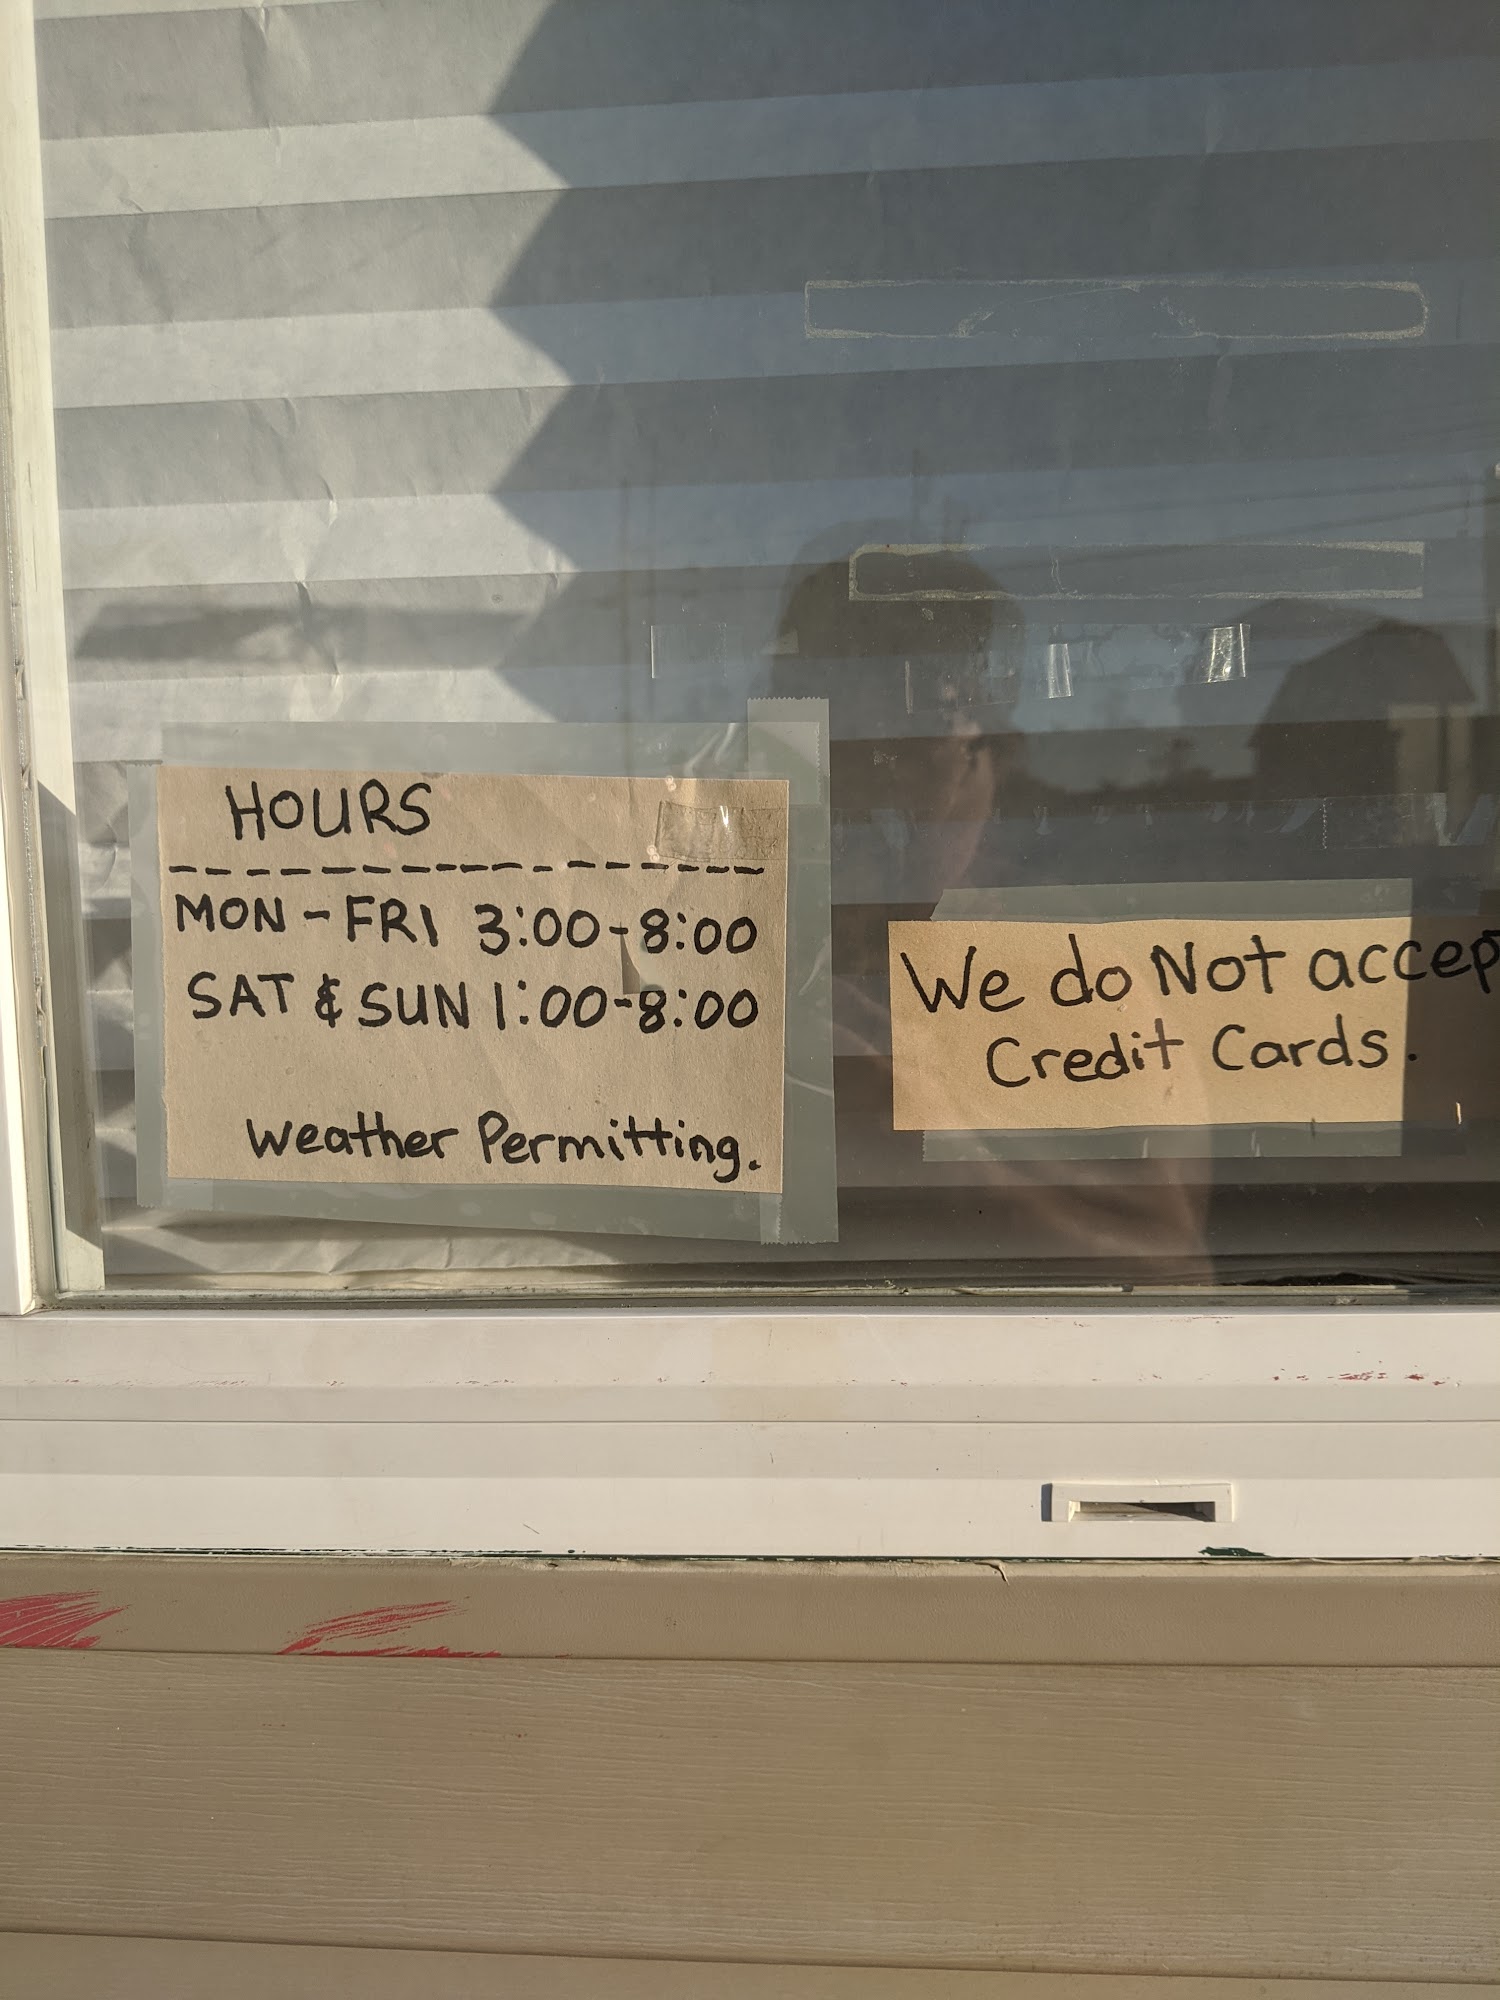 HOURS
MON - FRI 3:00-8:00
SAT & SUN 1:00-8:00
Weather Permitting.
We do Not accep
Credit Cards.